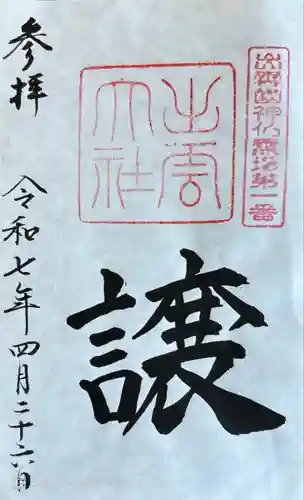 出雲國神仏霊場第一番
出雲大社
譲
参拝
令和七年四月二十六日